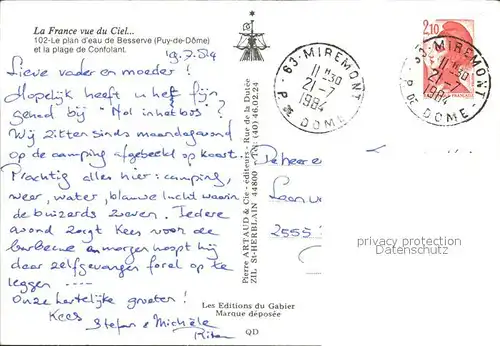 La France vue du Ciel...
102-Le plan d'eau de Besserve (Puy-de-Dôme)
et la plage de Confolant.
19.7.84
Lieve vader en moeder!
Hopelijk heeft u het fijn
gehad bij "Mol in het bos"?
Wij zitten sinds maandagavond
op de camping afgebeeld op kaart.
Prachtig alles hier: camping,
weer, water, blauwe lucht waarin
de buizards zweven. Iedere
avond zorgt Kees voor de
barbecue en morgen hoopt hij
daar zelfgevangen forel op te
leggen ----
Onze hartelijke groeten!
Kees
Stefan & Michèle
Rita
Pierre ARTAUD & Cie - éditeurs - Rue de la Dutée
ZIL St-HERBLAIN 44800 - Tél: (40) 46.02.24
Les Editions du Gabier
Marque déposée
QD
63-MIREMONT
11 H 30
21-7
1984
P. DE DOME
2,10
63-MIREMONT
11 H 30
21-7
1984
P. DE DOME
De heer e
Leen
2555
privacy protection
Datenschutz